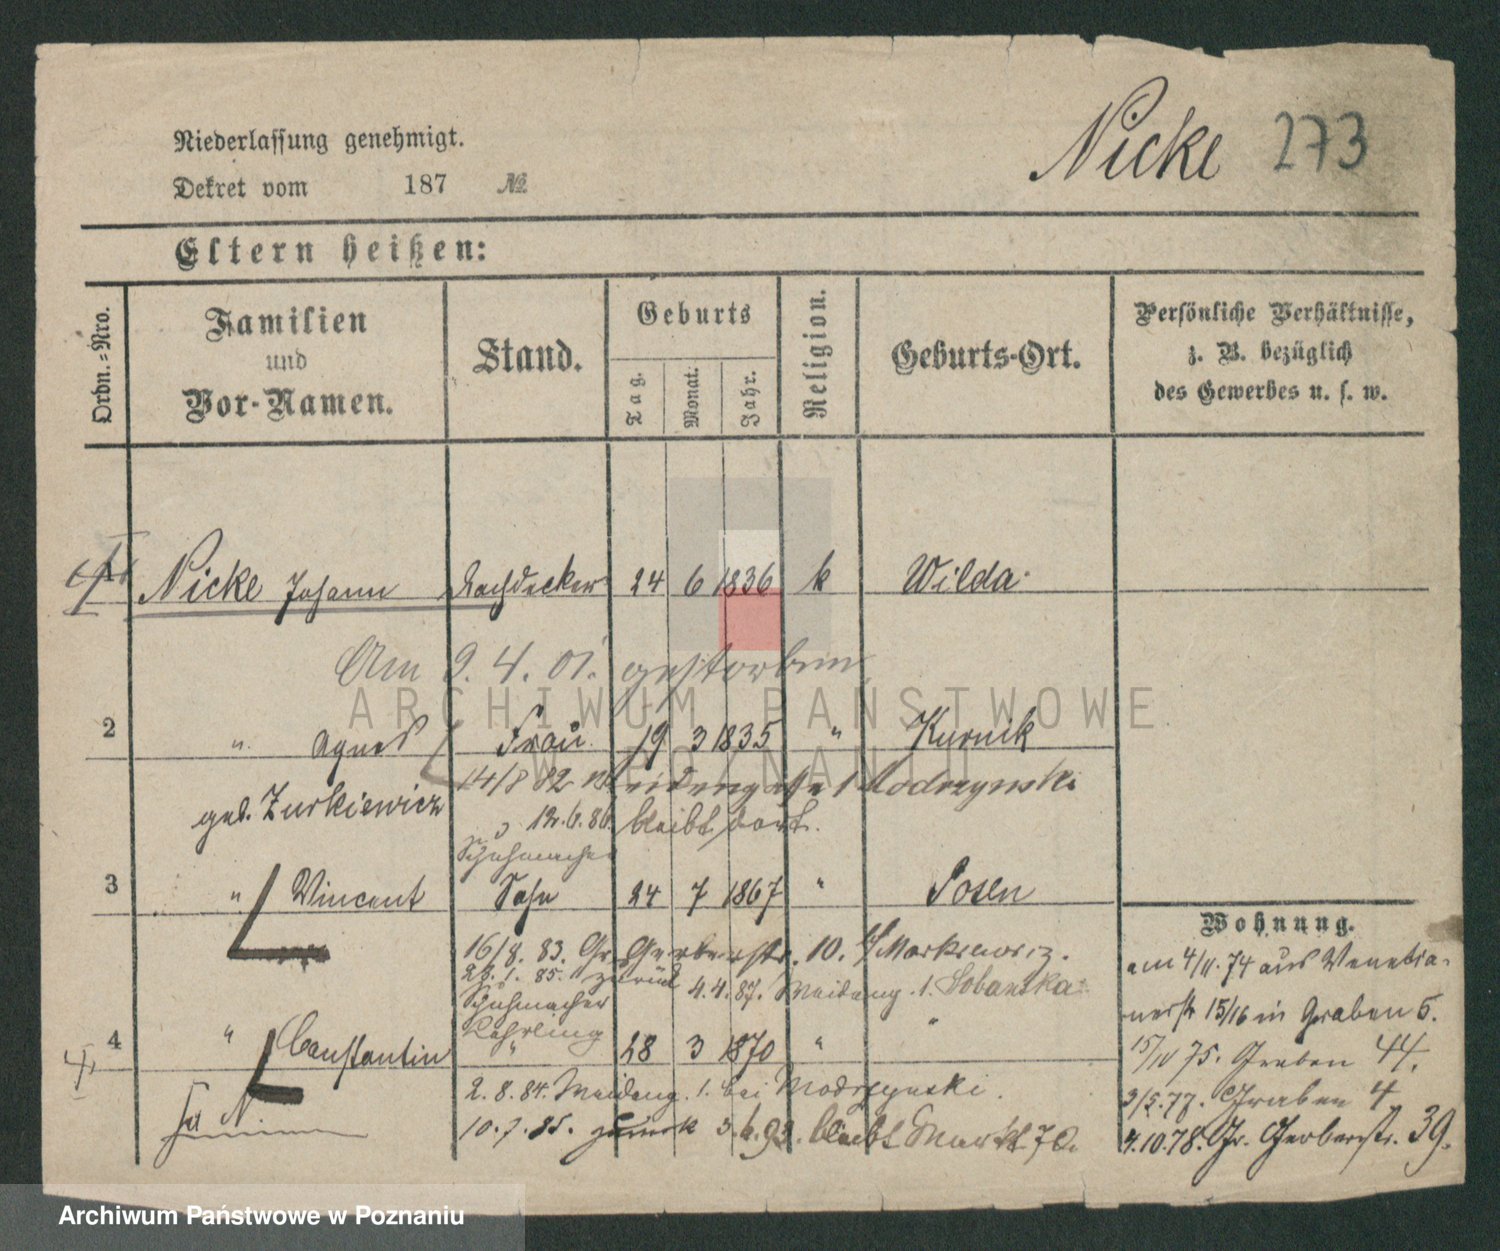 Nicke 273
Niederlassung genehmigt.
Dekret vom 187 №
Eltern heißen:
Ordn.-Nro.
Familien
und
Vor-Namen.
Stand.
Geburts
Tag.
Monat.
Jahr.
Religion.
Geburts-Ort.
Persönliche Verhältnisse,
z. B. bezüglich
des Gewerbes u. s. w.
Nicke Johann Dachdecker 24 6 1836 k Wilda
Am 9. 4. 01. gestorben
2 " Agnes Frau 19 3 1835 " Kurnik
14/8 82 1 Modrzynski
geb. Zurkiewicz
12.6.86. bleibt dort.
Schuhmacher
3 " Vincent Sohn 24 7 1867 " Posen
16/8. 83. Gr. Gerberstr. 10. Markiewicz.
23. 1. 85. zurück
4.4.87. Maideng. 1. Sobanska
Schuhmacher
Lehrling
4 " Constantin " 28 3 1870 " "
2. 8. 84. Maideng. 1. bei Modrzynski.
10. 7. 85. zurück 3. 6. 93. bleibt Markt 70.
Wohnung.
am 4/11. 74 aus Venetia-
nerstr 15/16 in Graben 5.
15/11 75. Graben 44.
3/5. 77. Graben 4
4.10.78. Gr. Gerberstr. 39.
ARCHIWUM PAŃSTWOWE
W POZNANIU
Archiwum Państwowe w Poznaniu